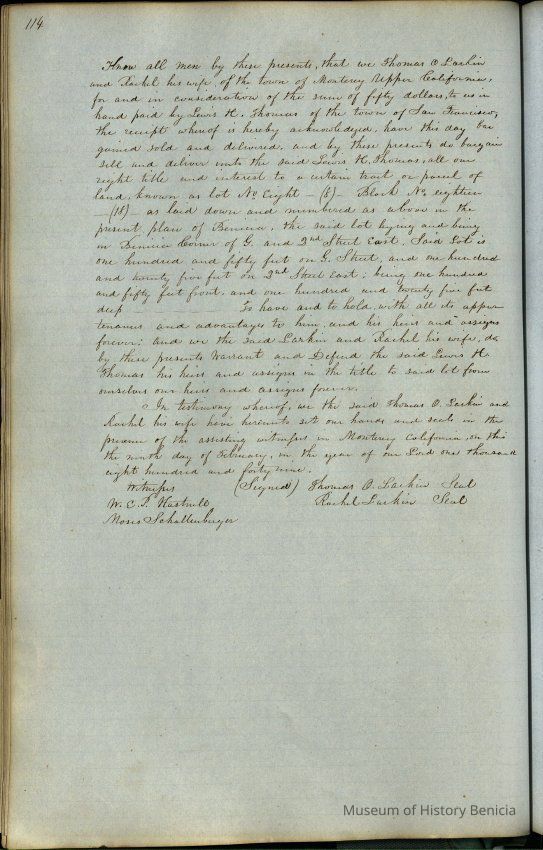 114
Know all men by these presents, that we Thomas O Larkin
and Rachel his wife of the town of Monterey Upper California,
for and in consideration of the sum of fifty dollars, to us in
hand paid by Lewis H. Thomas of the town of San Francisco,
the receipt whereof is hereby acknowledged, have this day bar
gained sold and delivered, and by these presents do bargain
sell and deliver unto the said Lewis H. Thomas, all our
right title and interest to a certain tract or parcel of
land, known as lot No Eight — (8) — Block No eighteen
— (18) — as laid down and numbered as above in the
present plan of Benicia, the said lot lying and being
in Benicia Corner of G. and 2nd Street East. Said Lot is
one hundred and fifty feet on G. Street, and one hundred
and twenty five feet on 2nd Street East; being one hundred
and fifty feet front, and one hundred and twenty five feet
deep To have and to hold, with all its appur
tenances and advantages to him, and his heirs and assigns
forever; and we the said Larkin and Rachel his wife, do
by these presents Warrant and Defend the said Lewis H.
Thomas his heirs and assigns in the title to said lot from
ourselves our heirs and assigns forever.
In testimony whereof, we the said Thomas O. Larkin and
Rachel his wife have hereunto set our hands and seals in the
presence of the assisting witnesses in Monterey California, on this
the ninth day of February, in the year of our Lord one thousand
eight hundred and forty nine.
Witnesses (Signed) Thomas O. Larkin Seal
W. E. P. Hartnell Rachel Larkin Seal
Moses Schallenberger
Museum of History Benicia